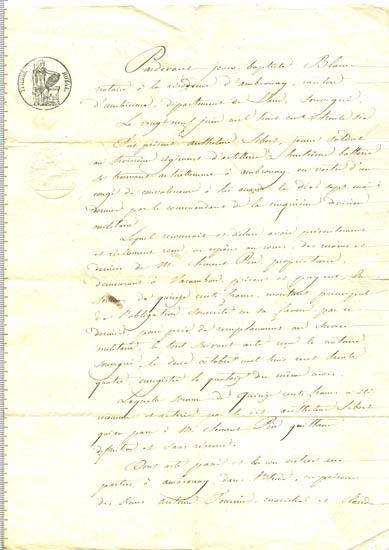 TIMBRE ROYAL
Pardevant jean baptiste Blanc
notaire à la résidence d'ambronay, canton
d'ambérieux, département de l'ain, soussigné.
Le vingt neuf juin mil huit cent trente six
Est présent anthelme Sibert, jeune soldat
au troisième régiment d'artillerie, huitième batterie
se trouvant actuellement à ambronay, en vertu d'un
congé de convalescence à lui le dix sept mai
dernier par le commandant de la cinquième division
militaire
Lequel reconnait et déclare avoir présentement
et réellement reçu en espèces au cours, des mains et
deniers de M. Clément propriétaire,
demeurant à Varambon, présent et payant la
somme de quinze cents francs, montant principal
de l'obligation souscrite en sa faveur par ce
dernier, pour prix de remplacement au service
militaire, le tout suivant acte reçu le notaire
soussigné, le douze octobre mil huit cent trente
quatre, enregistré le quatorze du même mois.
Laquelle somme de quinze cents francs a été
et retirée par le dit anthelme Sibert
qui en passe à M. Clément quittance
définitive et sans réserve.
Dont acte, passé et lu aux
parties à ambronay dans l'étude, en présence
des sieurs antoine maréchal et Claude